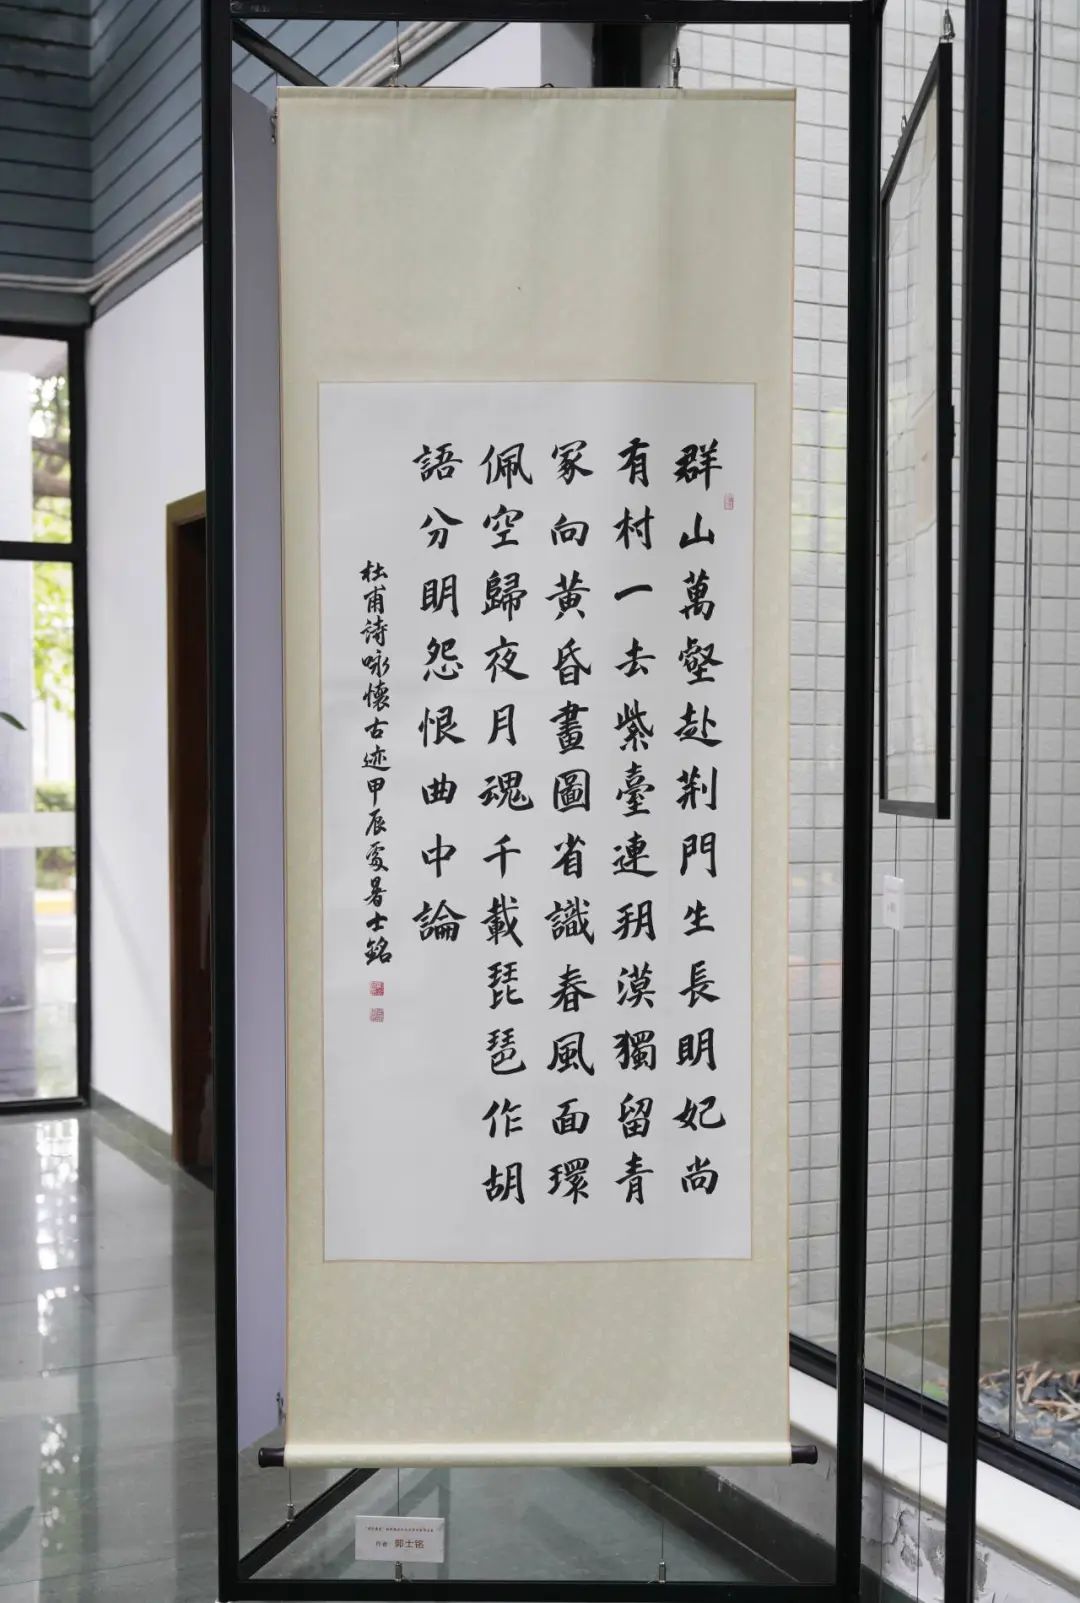 群山萬壑赴荆門生長明妃尚
有村一去紫臺連朔漠獨留青
冢向黃昏畫圖省識春風面環
佩空歸夜月魂千載琵琶作胡
語分明怨恨曲中論
杜甫诗咏懷古迹甲辰處暑士銘
作者 郭士铭